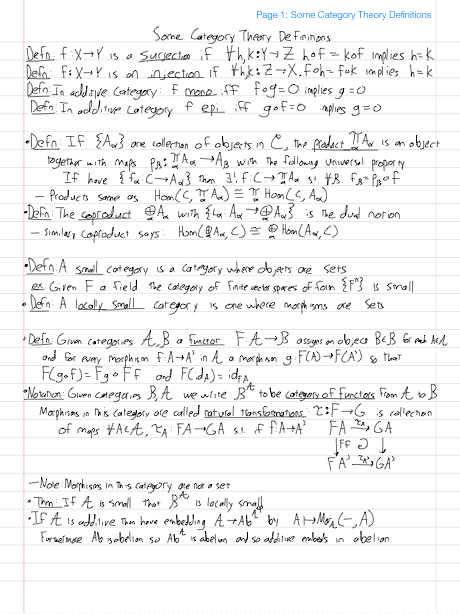 Page 1: Some Category Theory Definitions
Some Category Theory Definitions
Defn: f: X→Y is a surjection if ∀h,k: Y→Z h∘f = k∘f implies h=k
Defn: f: X→Y is an injection if ∀h,k: Z→X, f∘h = f∘k implies h=k
Defn: In additive category: f mono iff f∘g=0 implies g=0
Defn: In additive category f epi iff g∘f=0 implies g=0
• Defn: If {Aα} are collection of objects in C, the product ∏Aα is an object
together with maps pβ: ∏Aα → Aβ with the following universal property
If have {fα: C→Aα} then ∃! f: C→∏Aα s.t. ∀β. fβ = pβ∘f
– Products same as Hom(C, ∏Aα) ≅ ∏ Hom(C, Aα)
• Defn: The coproduct ⊕Aα with {ια: Aα→⊕Aα} is the dual notion
– Similarly coproduct says: Hom(⊕Aα, C) ≅ ⊕ Hom(Aα, C)
• Defn: A small category is a category where objects are sets
ex: Given F a field the category of finite vector spaces of form {Fⁿ} is small
• Defn: A locally small category is one where morphisms are sets
• Defn: Given categories A, B a functor F: A→B assigns an object B∈B for each A∈A
and for every morphism f: A→A' in A a morphism g: F(A)→F(A') so that
F(g∘f) = Fg∘Ff and F(id_A) = id_FA
• Notation: Given categories B, A we write B^A to be category of functors from A to B
Morphisms in this category are called natural transformations: τ: F→G is collection
of maps ∀A∈A, τ_A: FA→GA s.t. if f: A→A' FA →τ_A GA
↓Ff ↓
FA' →τ_A' GA'
– Note: Morphisms in this category are not a set
• Thm: If A is small that B^A is locally small
• If A is additive then have embedding A→Ab^A by A↦Mor_A(–, A)
Furthermore Ab is abelian so Ab^A is abelian and so additive embeds in abelian